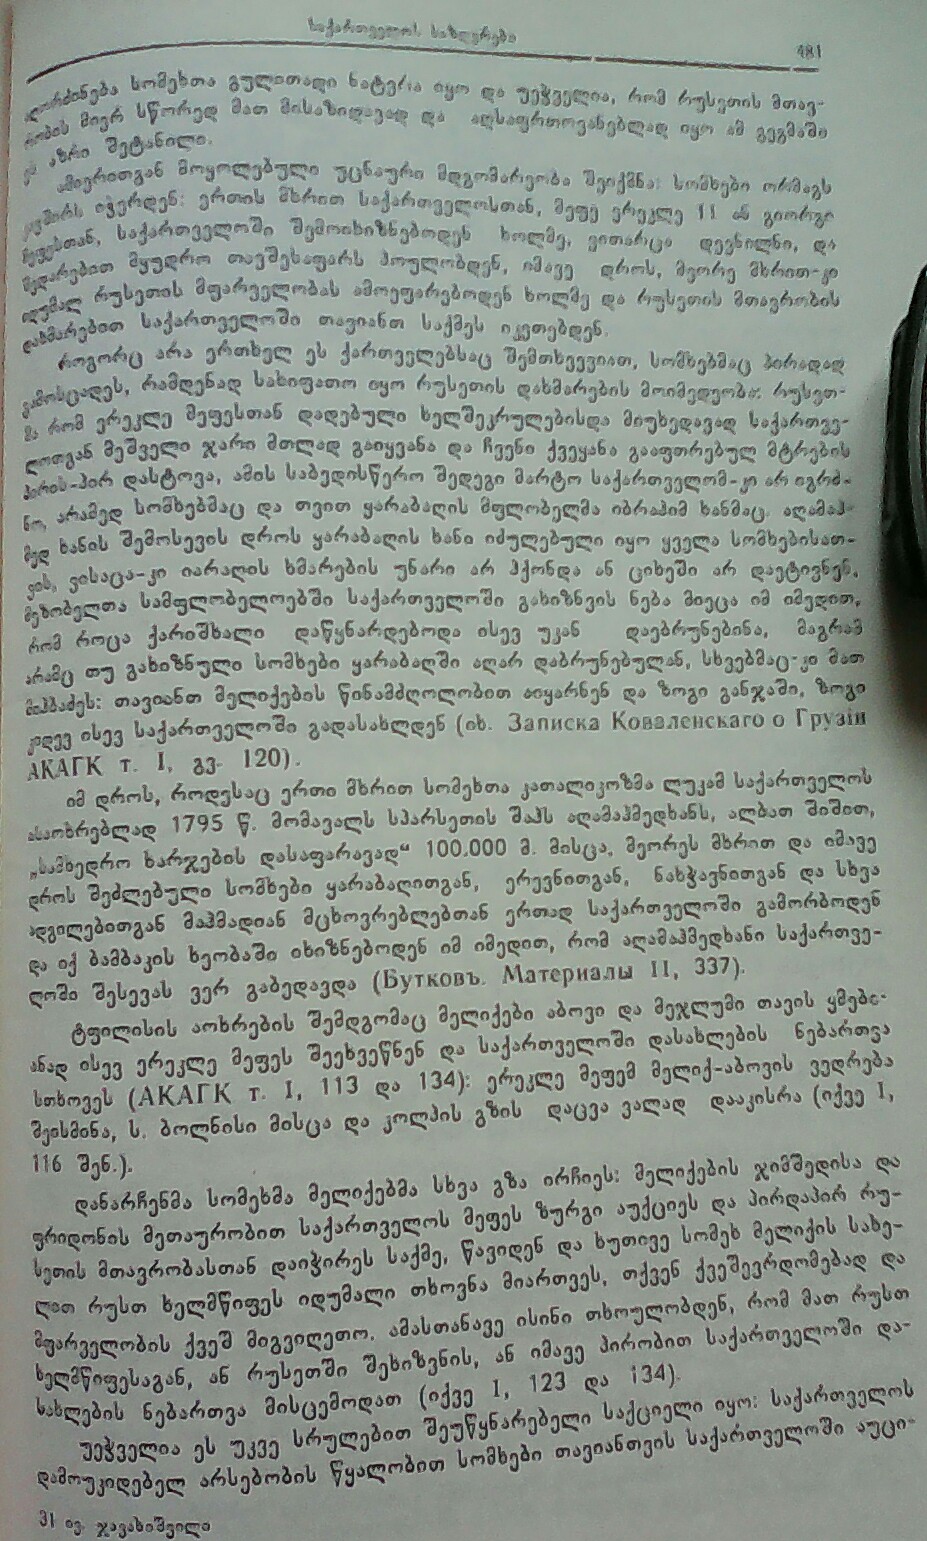 საქართველოს საზღვრები
481
ღორძინება სომეხთა გულითადი ნატვრა იყო და უეჭველია, რომ რუსეთის მთავ-
რობის მიერ სწორედ მათ მისაზიდავად და აღსაფრთოვანებლად იყო ამ გეგმაში
ეს აზრი შეტანილი.
ამიერითგან მოყოლებული უცნაური მდგომარეობა შეიქმნა: სომხები ორმაგს
კავშირს იჭერდენ: ერთის მხრით საქართველოსთან, მეფე ერეკლე II ან გიორგი
მეფესთან, საქართველოში შემოიხიზნებოდენ ხოლმე, ვითარცა დევნილნი, და
შედარებით მყუდრო თავშესაფარს პოულობდენ, იმავე დროს, მეორე მხრით-კი
იდუმალ რუსეთის მფარველობას ამოეფარებოდენ ხოლმე და რუსეთის მთავრობის
დახმარებით საქართველოში თავიანთ საქმეს იკეთებდენ.
როგორც არა ერთხელ ეს ქართველებსაც შემთხვევიათ, სომხებმაც პირადად
გამოსცადეს, რამდენად სახიფათო იყო რუსეთის დახმარების მოიმედეობა: რუსეთ-
მა რომ ერეკლე მეფესთან დადებული ხელშეკრულებისდა მიუხედავად საქართვე-
ლოთგან მეშველი ჯარი მთლად გაიყვანა და ჩვენი ქვეყანა გააფთრებულ მტრების
პირის-პირ დასტოვა, ამის საბედისწერო შედეგი მარტო საქართველომ-კი არ იგრძ-
ნო, არამედ სომხებმაც და თვით ყარაბაღის მფლობელმა იბრაჰიმ ხანმაც. აღამაჰ-
მედ ხანის შემოსევის დროს ყარაბაღის ხანი იძულებული იყო ყველა სომხებისათ-
ვის, ვისაცა-კი იარაღის ხმარების უნარი არ ჰქონდა ან ციხეში არ დაეტივნენ,
მეზობელთა სამფლობელოებში საქართველოში გახიზნვის ნება მიეცა იმ იმედით,
რომ როცა ქარიშხალი დაწყნარდებოდა ისევ უკან დაებრუნებინა, მაგრამ
არამც თუ გახიზნული სომხები ყარაბაღში აღარ დაბრუნებულან, სხვებმაც-კი მათ
მიჰბაძეს: თავიანთ მელიქების წინამძღოლობით აიყარნენ და ზოგი განჯაში, ზოგი
კიდევ ისევ საქართველოში გადასახლდენ (იხ. Записка Коваленскаго о Грузіи
АКАГК т. I, გვ. 120).
იმ დროს, როდესაც ერთი მხრით სომეხთა კათალიკოზმა ლუკამ საქართველოს
ასაოხრებლად 1795 წ. მომავალს სპარსეთის შაჰს აღამაჰმედხანს, ალბათ შიშით,
„სამხედრო ხარჯების დასაფარავად“ 100.000 მ. მისცა, მეორეს მხრით და იმავე
დროს შეძლებული სომხები ყარაბაღითგან, ერევნითგან, ნახჭავნითგან და სხვა
ადგილებითგან მაჰმადიან მცხოვრებლებთან ერთად საქართველოში გამორბოდენ
და იქ ბამბაკის ხეობაში იხიზნებოდენ იმ იმედით, რომ აღამაჰმედხანი საქართვე-
ლოში შესევას ვერ გაბედავდა (Бутковъ. Материалы II, 337).
ტფილისის აოხრების შემდგომაც მელიქები აბოვი და მეჯლუმი თავის ყმები-
ანად ისევ ერეკლე მეფეს შეეხვეწნენ და საქართველოში დასახლების ნებართვა
სთხოვეს (АКАГК т. I, 113 და 134): ერეკლე მეფემ მელიქ-აბოვის ვედრება
შეისმინა, ს. ბოლნისი მისცა და კოლპის გზის დაცვა ვალად დააკისრა (იქვე I,
116 შენ.).
დანარჩენმა სომეხმა მელიქებმა სხვა გზა ირჩიეს: მელიქების ჯიმშედისა და
ფრიდონის მეთაურობით საქართველოს მეფეს ზურგი აუქციეს და პირდაპირ რუ-
სეთის მთავრობასთან დაიჭირეს საქმე, წავიდენ და ხუთივე სომეხ მელიქის სახე-
ლით რუსთ ხელმწიფეს იდუმალი თხოვნა მიართვეს, თქვენ ქვეშევრდომებად და
მფარველობის ქვეშ მიგვიღეთო. ამასთანავე ისინი თხოულობდენ, რომ მათ რუსთ
ხელმწიფესაგან, ან რუსეთში შეხიზვნის, ან იმავე პირობით საქართველოში და-
სახლების ნებართვა მისცემოდათ (იქვე I, 123 და 134).
უეჭველია ეს უკვე სრულებით შეუწყნარებელი საქციელი იყო: საქართველოს
დამოუკიდებელ არსებობის წყალობით სომხები თავიანთვის საქართველოში აუცი-
31 ივ. ჯავახიშვილი